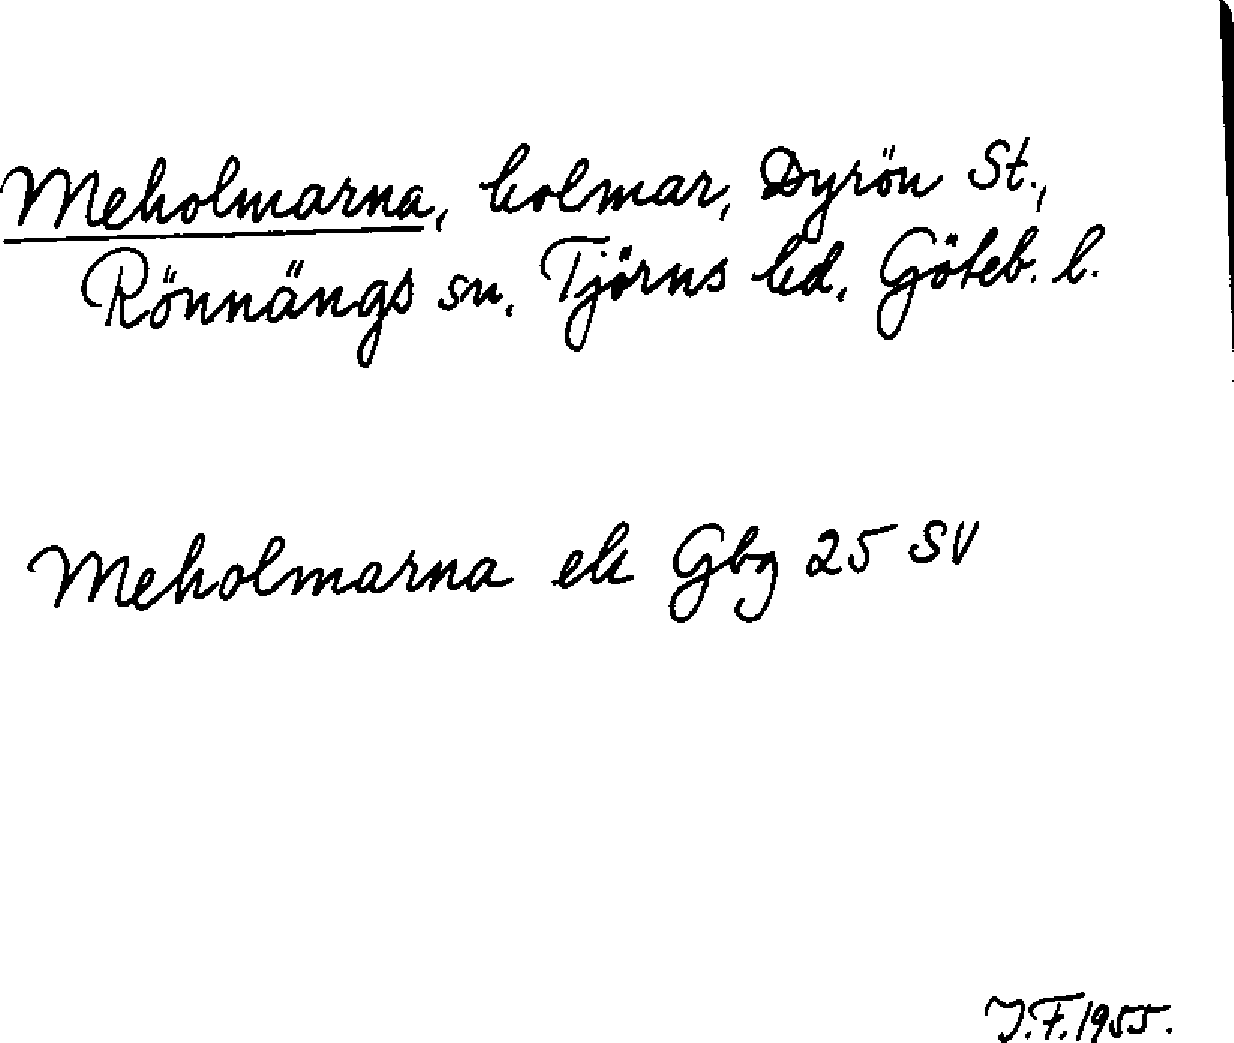 Meholmarna, holmar, Dyrön St.,
Rönnängs sn, Tjörns hd, Göteb. l.
Meholmarna ek Gbg 25 SV
J.F. 1955.